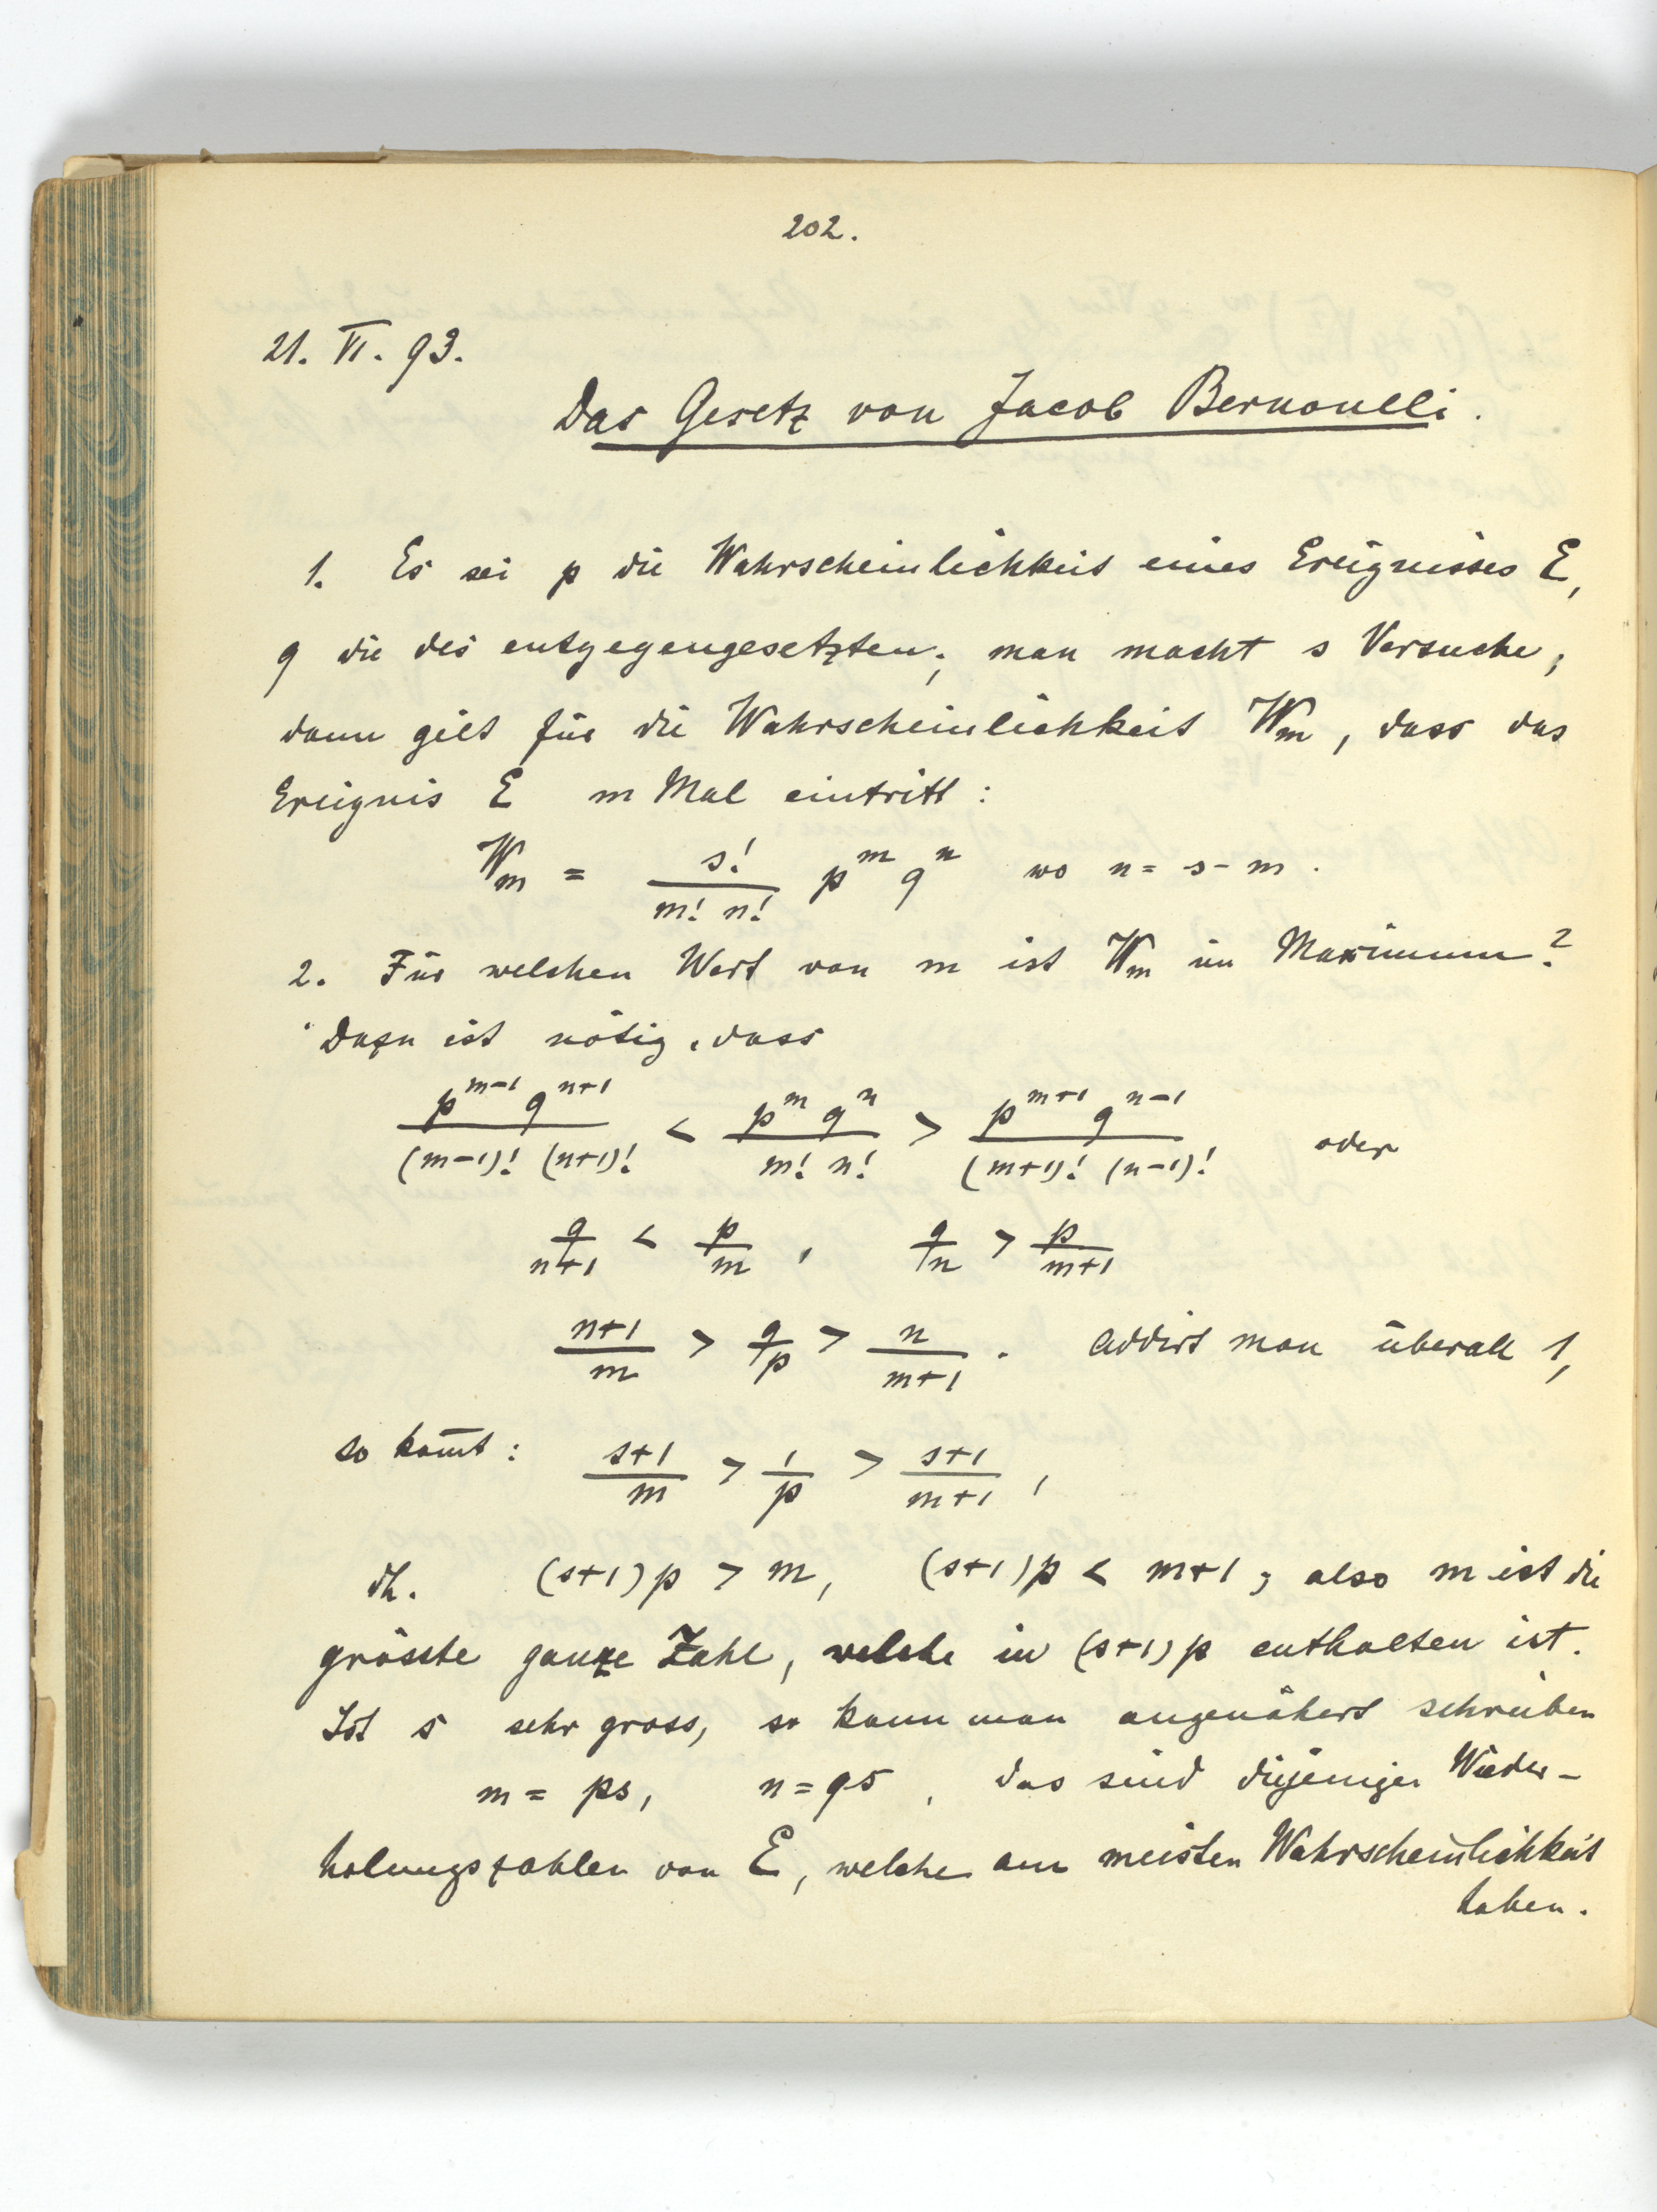 202.
21. VI. 93.
Das Gesetz von Jacob Bernoulli.
1. Es sei p die Wahrscheinlichkeit eines Ereignisses E,
q die des entgegengesetzten; man macht s Versuche,
dann gilt für die Wahrscheinlichkeit W_m, dass das
Ereignis E m Mal eintritt:
W_m = \frac{s!}{m! n!} p^m q^n wo n = s - m.
2. Für welchen Wert von m ist W_m im Maximum?
Dazu ist nötig, dass
\frac{p^{m-1} q^{n+1}}{(m-1)! (n+1)!} < \frac{p^m q^n}{m! n!} > \frac{p^{m+1} q^{n-1}}{(m+1)! (n-1)!} oder
\frac{q}{n+1} < \frac{p}{m}, \frac{q}{n} > \frac{p}{m+1}
\frac{n+1}{m} > \frac{q}{p} > \frac{n}{m+1}. Addirt man überall 1,
so kom̄t: \frac{s+1}{m} > \frac{1}{p} > \frac{s+1}{m+1},
dh. (s+1)p > m, (s+1)p < m+1; also m ist die
grösste ganze Zahl, welche in (s+1)p enthalten ist.
Ist s sehr gross, so kann man angenähert schreiben
m = ps, n = qs, das sind diejenigen Wieder-
holungszahlen von E, welche am meisten Wahrscheinlichkeit
haben.